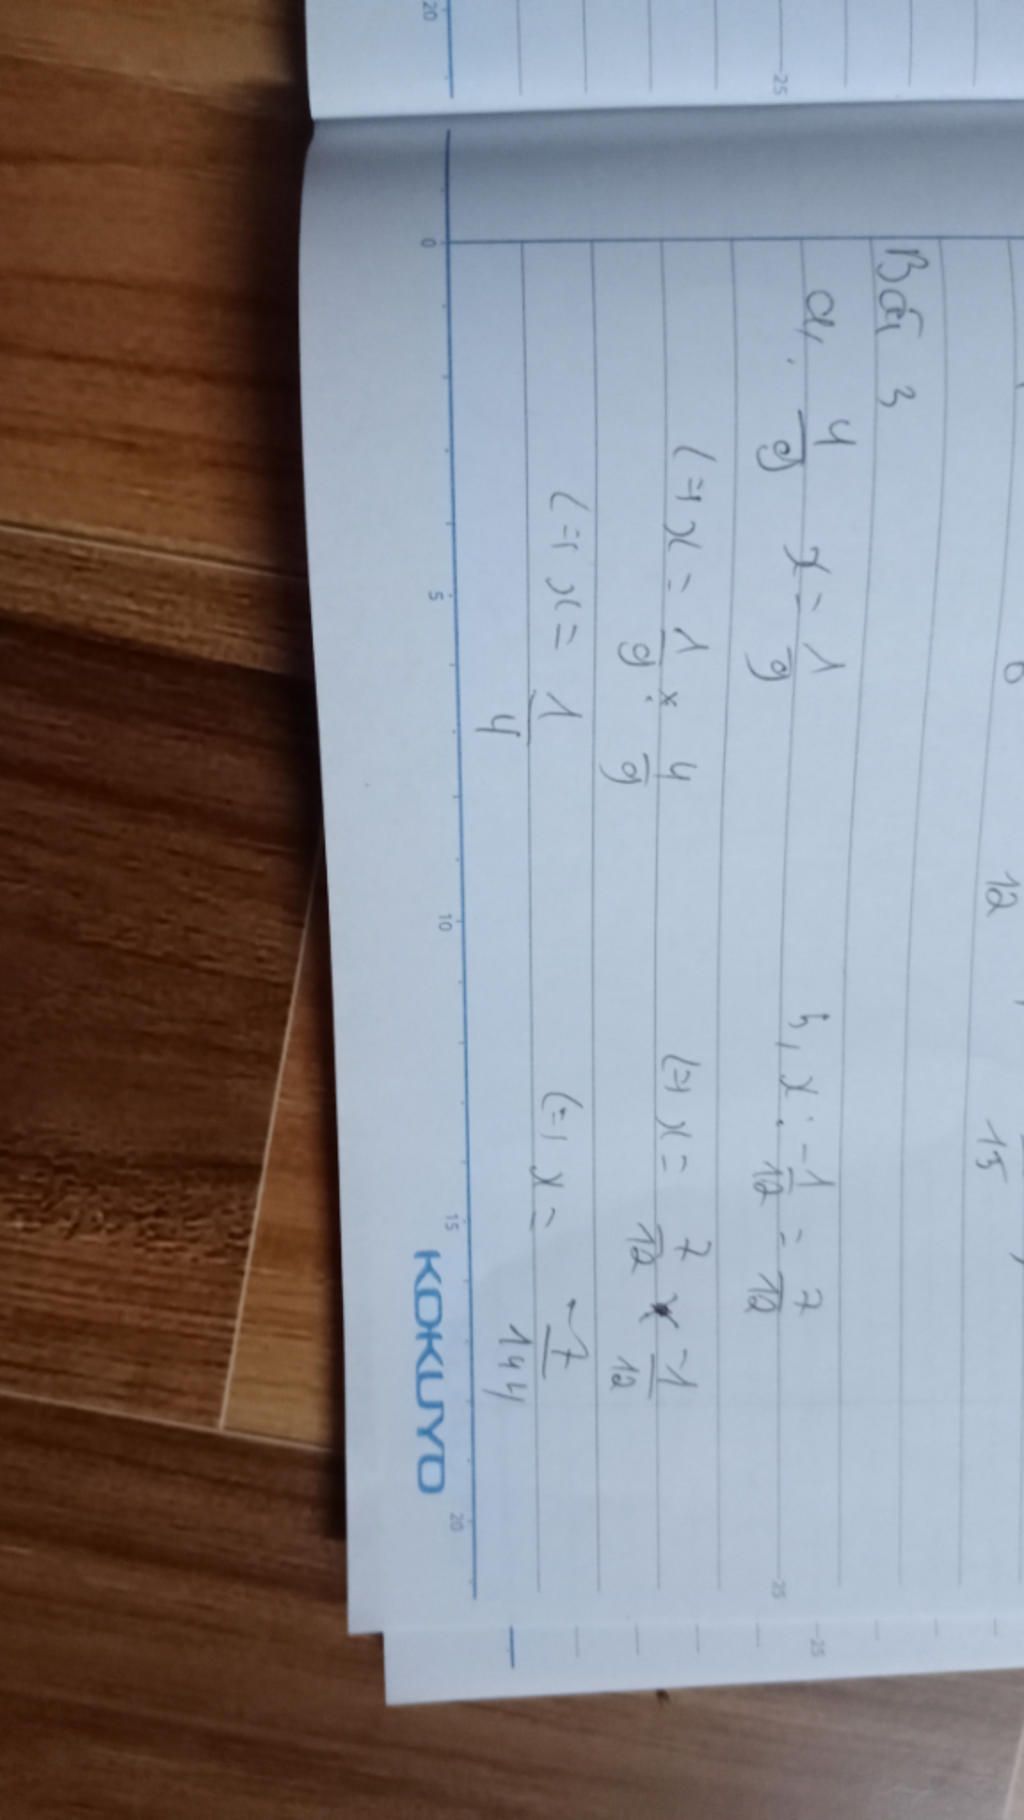 20
25
6 12 15
Bài 3
a, 4/9 x = 1/9
(=) x = 1/9 : 4/9
(=) x = 1/4
b, x : -1/12 = 7/12
(=) x = 7/12 x -1/12
(=) x = -7/144
0 5 10 15 20
KOKUYO
25
25